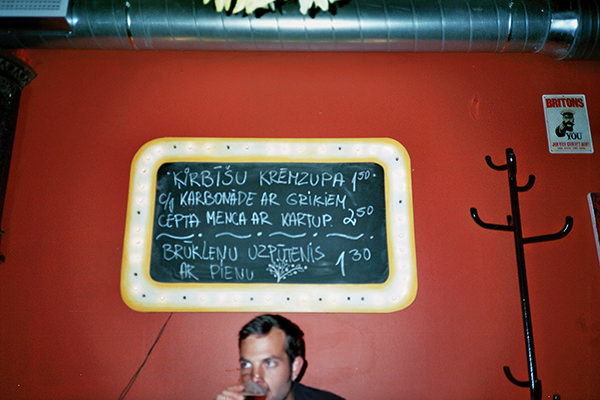 ĶIRBĪŠU KRĒMZUPA 1 50
C/G KARBONĀDE AR GRIĶIEM
CEPTA MENCA AR KARTUP. 2 50
BRŪKLEŅU UZPŪTENIS
AR PIENU 1 30
BRITONS
YOU